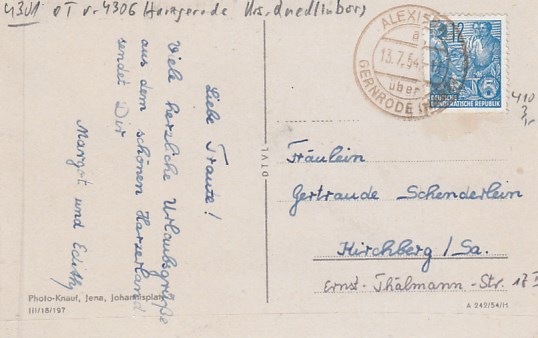 4301 OT v. 4306 Harzgerode Krs. Quedlinburg
ALEXISBAD
13.7.54
über
GERNRODE
12
5
DEUTSCHE
DEMOKRATISCHE REPUBLIK
410
3,-
Liebe Traute!
Viele herzliche Urlaubsgrüße
aus dem schönen Harzerland
sendet Dir
Margot und Edith
DIVL
Fräulein
Gertraude Schenderlein
Kirchberg / Sa.
Ernst-Thälmann-Str. 17
Photo-Knauf, Jena, Johannisplatz
III/18/197
A 242/54/H